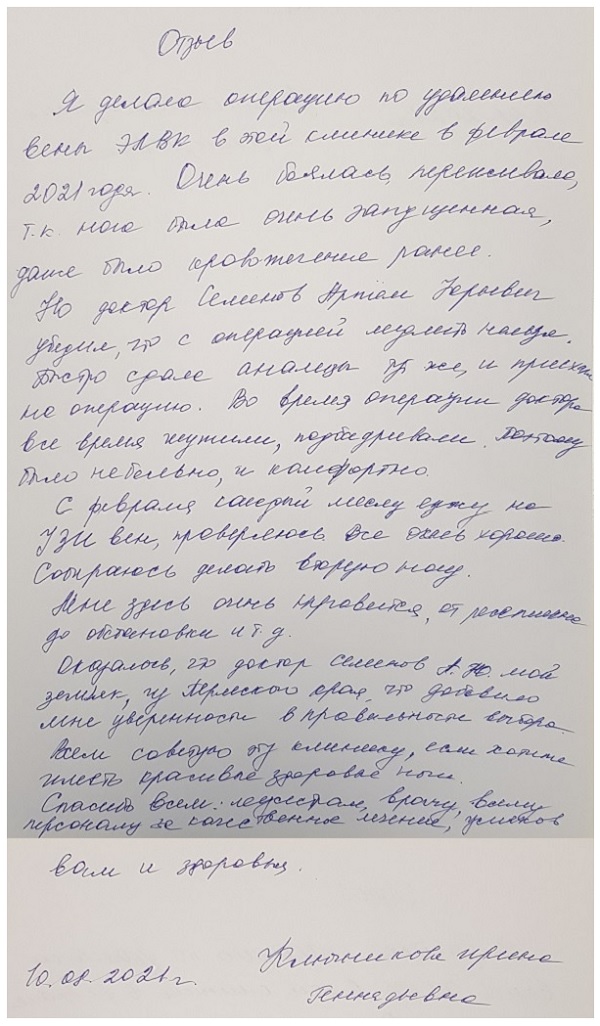 Отзыв
Я делала операцию по удалению
вены ЭЛВК в этой клинике в феврале
2021 года. Очень боялась, переживала,
т.к. нога была очень запущенная,
даже было кровотечение ранее.
Но доктор Семенов Артем Юрьевич
убедил, что с операцией медлить нельзя.
Быстро сдала анализы тут же, и приехала
на операцию. Во время операции доктора
все время шутили, подбадривали. Поэтому
было небольно, и комфортно.
С февраля каждый месяц езжу на
УЗИ вен, проверяюсь. Все очень хорошо.
Собираюсь делать вторую ногу.
Мне здесь очень нравится, от ресепшена
до обстановки и т.д.
Оказалось, что доктор Семенов А.Ю. мой
земляк, из Пермского края, что добавило
мне уверенности в правильности выбора.
Всем советую эту клинику, если хотите
иметь красивые здоровые ноги.
Спасибо всем: медсестрам, врачу, всему
персоналу за качественное лечение, успехов
вам и здоровья.
Ключникова Ирина
10.08.2021г. Геннадьевна